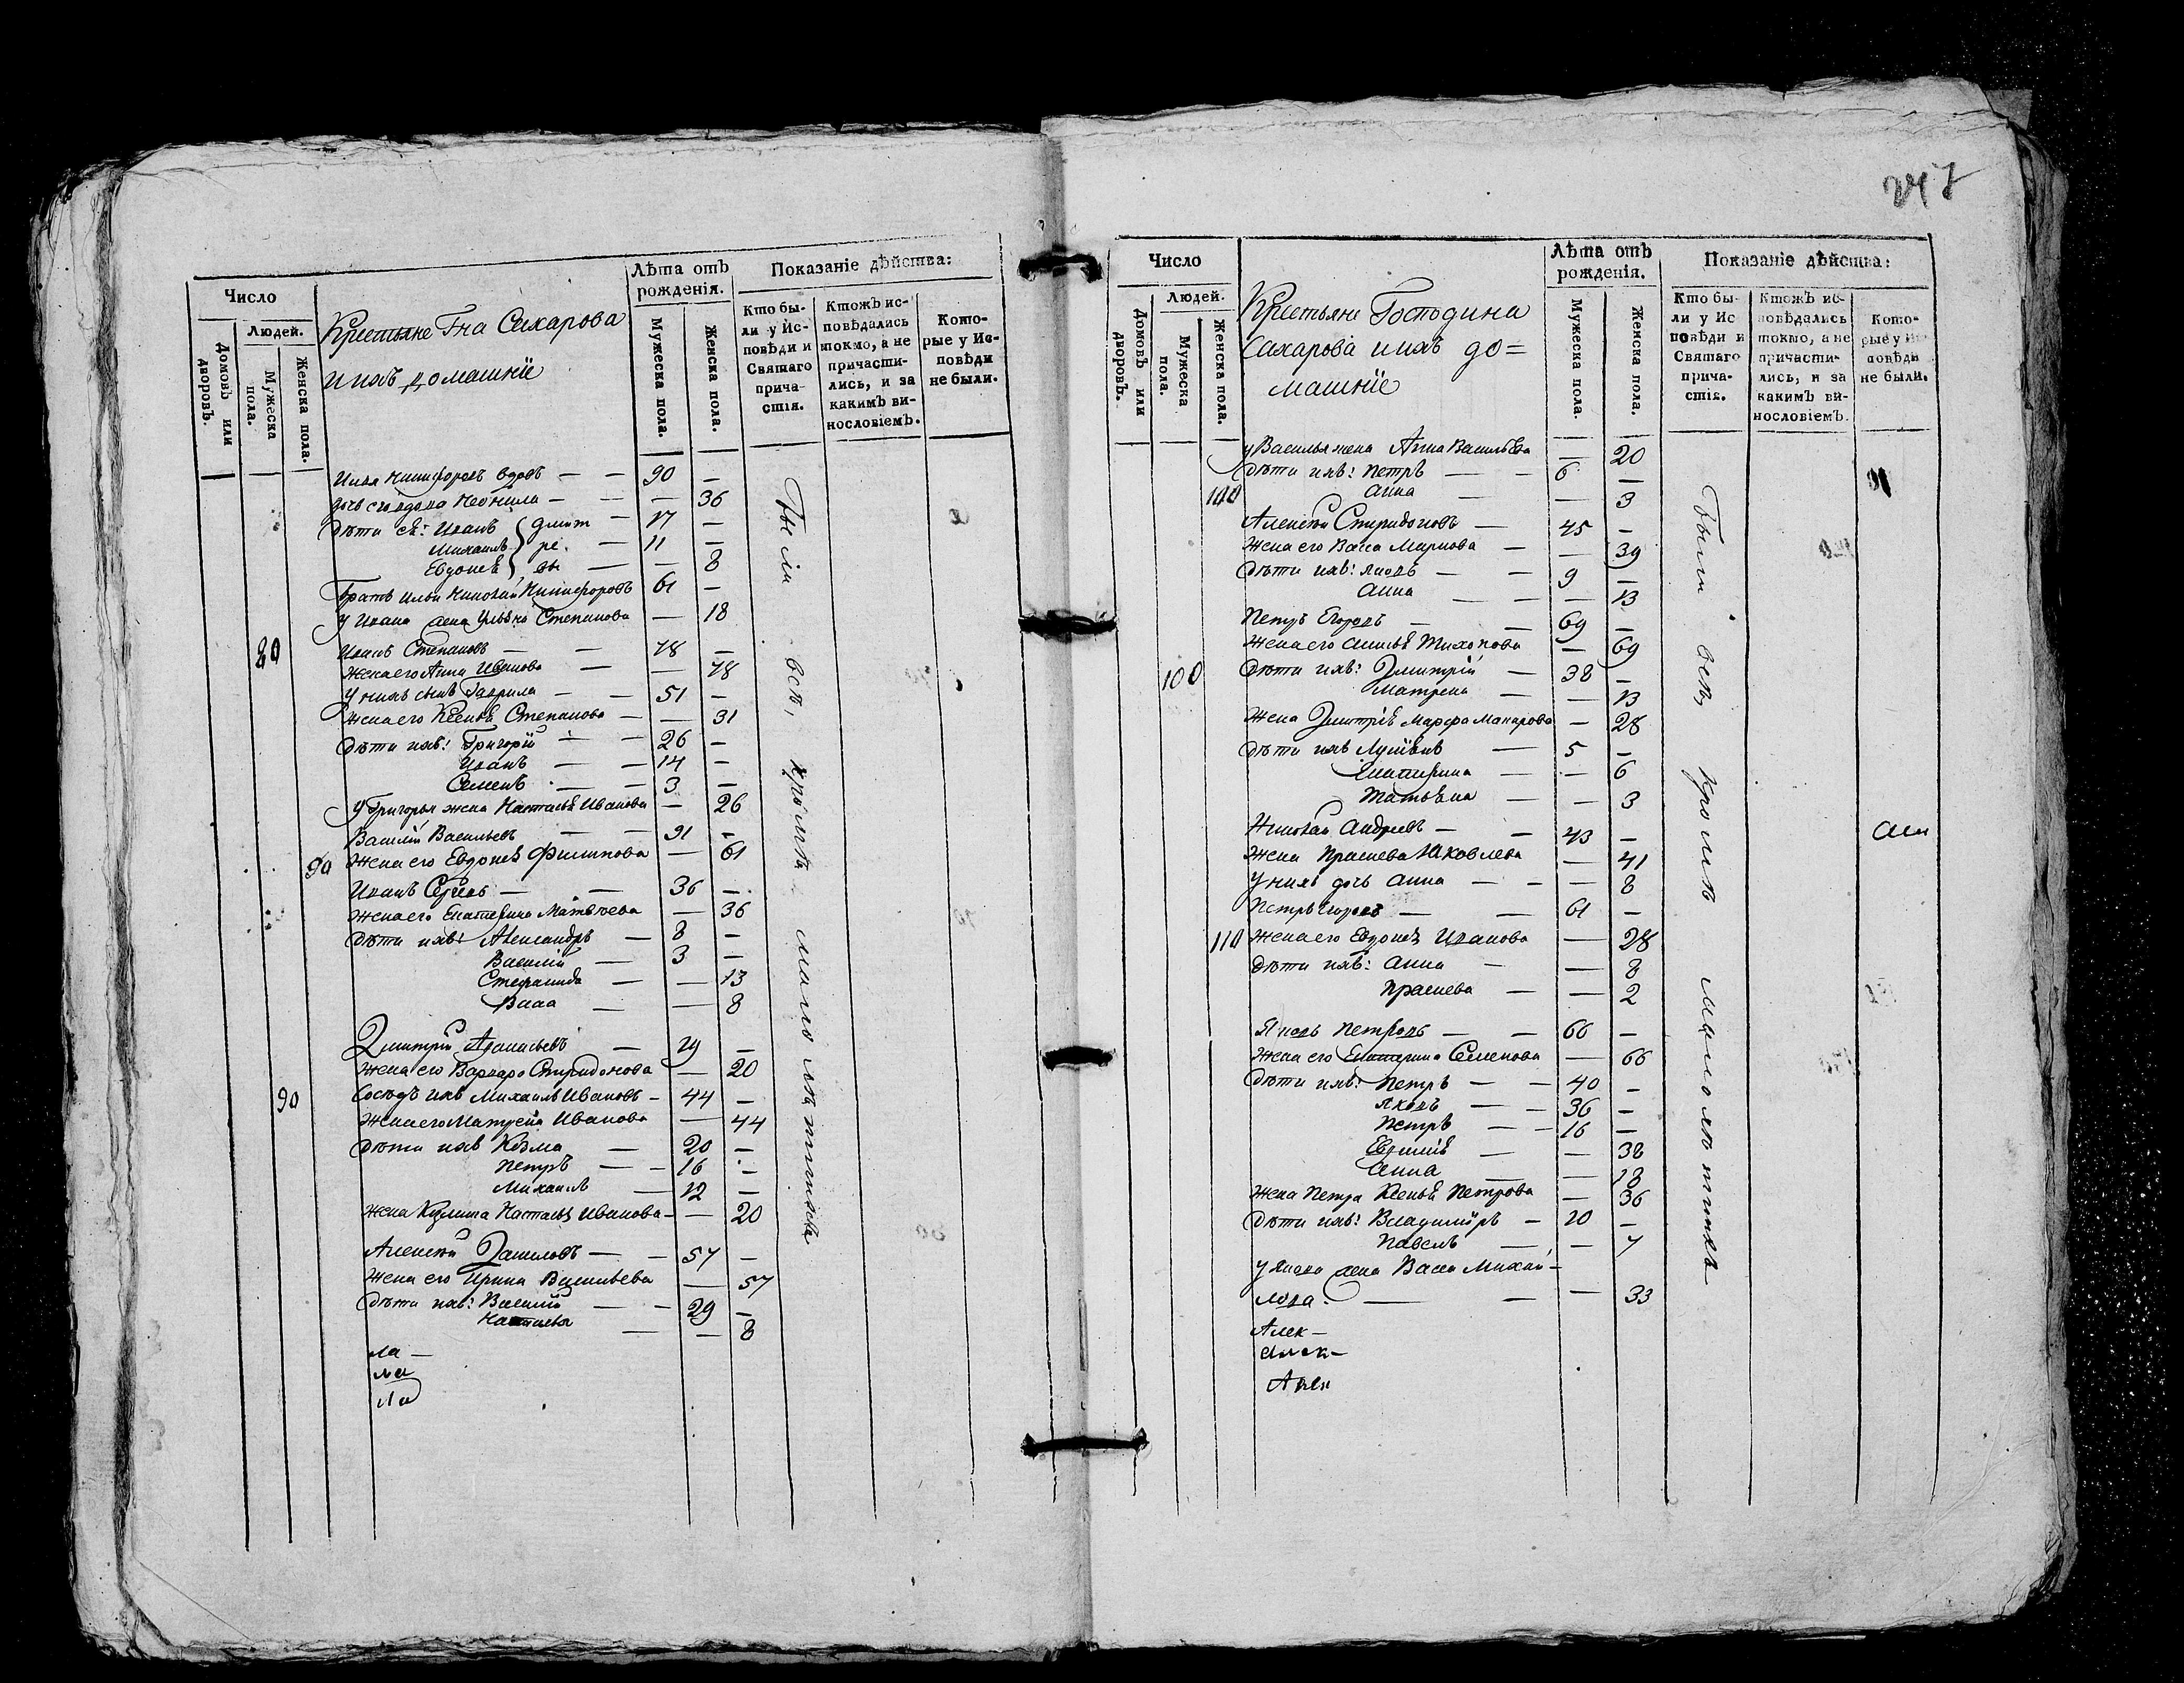 247
Число
Людей.
Домовъ или дворовъ.
Мужеска пола.
Женска пола.
Крестьяне Гна Сахарова
и ихъ домашніе
Лѣта отъ рожденія.
Мужеска пола.
Женска пола.
Показаніе дѣйства:
Кто бы-
ли у Ис-
повѣди и
Святаго
прича-
стія.
Ктожъ ис-
повѣдались
токмо, а не
причасти-
лись, и за
какимъ ви-
нословіемъ.
Кото-
рые у Ис-
повѣди
не были.
Илья Никифоровъ вдовъ — — 90 —
дочь его вдова Неонила — — — 36
дѣти ея: Иванъ 17 —
Михаилъ — 11 —
Евдокія — — 8
Братъ Ильи Николай Никифоровъ 61 —
у Ивана жена Ульяна Степанова — 18
80 Иванъ Степановъ — — 78 —
Жена его Анна Иванова — — 78
У нихъ сынъ Гаврила — — 51 —
Жена его Ксенья Степанова — — 31
дѣти ихъ: Григорій — — 26 —
Иванъ — — 14 —
Семенъ — — 3 —
У Григорья жена Настасья Иванова — 26
Василій Васильевъ — — 91 —
90 Жена его Евдокія Филипова — 61
Иванъ — — 36 —
Жена его Екатерина Матвѣева — 36
Дѣти ихъ: Александръ — 8 —
Василій — 3 —
Стефанида — — 13
Васса — — 8
Дмитрій Афанасьевъ — 29 —
Жена его Варвара Спиридонова — 20
90 Сосѣдъ ихъ Михаилъ Ивановъ — 44 —
Жена его Матрена Иванова — 44
Дѣти ихъ Козма — 20 —
Петръ — — 16 —
Михаилъ — 12 —
Жена Кузмина Настасья Иванова — — 20
Алексѣй Даниловъ — — 57 —
Жена его Ирина Васильева — 57
Дѣти ихъ: Василій — — 29 —
Настасья — — 8
ла —
ла
ла
Были всѣ, кромѣ малолѣтныхъ
Число
Людей.
Домовъ или дворовъ.
Мужеска пола.
Женска пола.
Крестьяне Господина
Сахарова и ихъ до=
машніе
Лѣта отъ рожденія.
Мужеска пола.
Женска пола.
Показаніе дѣйства:
Кто бы-
ли у Ис
повѣди и
Святаго
прича-
стія.
Ктожъ ис-
повѣдались
токмо, а не
причасти-
лись, и за
какимъ ви-
нословіемъ.
Кото-
рые у Ис
повѣди
не были.
у Василья жена Анна Васильева — 20
Дѣти ихъ: Петръ — — 6 —
100 Анна — — 3
Алексѣй Спиридоновъ — 45 —
Жена его Васса Маркова — — 39
Дѣти ихъ: Яковъ — — 9 —
Анна — — — 13
Петръ Егоровъ — — 69 —
Жена его Тихонова — 69
100 Дѣти ихъ: Дмитрій — 38 —
Матрена — — 13
Жена Дмитрія Марфа Макарова — 28
Дѣти ихъ — 5 —
Екатерина — — 6
Татьяна — — 3
Николай Андреевъ — — 43 —
Жена Прасковья Яковлева — 41
У нихъ дочь Анна — — — 8
Петръ Егоровъ — — 61 —
110 Жена его Евдокія Иванова — 28
Дѣти ихъ: Анна — — 8
Прасковья — — 2
Яковъ Петровъ — — 66 —
Жена его Екатерина Семенова — 66
Дѣти ихъ: Петръ — — 40 —
Яковъ — — 36 —
Петръ — — 16 —
Евдокія — — 38
Анна — 18
Жена Петра Ксенья Петрова — 36
Дѣти ихъ: Владимиръ — 10 —
Павелъ — — 7
у Якова жена Васса Михай-
лова. — — — 33
Алек —
Алек —
Алек
Были всѣ, кромѣ малолѣтныхъ